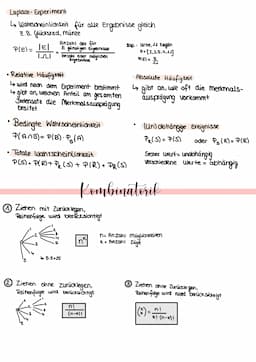 Laplace-Experiment
↳ Wahrscheinlichkeit für alle Ergebnisse gleich
z.B. Glücksrad, Münze
P(E) = |E| / |Ω| = Anzahl der für E günstigen Ergebnisse / Anzahl aller möglichen Ergebnisse
• Relative Häufigkeit
↳ wird nach dem Experiment bestimmt
↳ gibt an, welchen Anteil an gesamten
die Merkmalsausprägung
hat
• Absolute Häufigkeit
↳ gibt an, wie oft die Merkmals-
ausprägung vorkommt
• Bedingte Wahrscheinlichkeit
• (Un)abhängige Ereignisse
oder
• Totale Wahrscheinlichkeit
Selber Wert = unabhängig
Verschiedene Werte = abhängig
Kombinatorik
① Ziehen mit Zurücklegen,
Reihenfolge wird berücksichtigt
nᵏ
n = Anzahl Möglichkeiten
k = Anzahl Züge
② Ziehen ohne Zurücklegen,
Reihenfolge wird berücksichtigt
n! / (n-k)!
③ Ziehen ohne Zurücklegen,
Reihenfolge wird nicht berücksichtigt
(n k) = n! / k!·(n-k)!